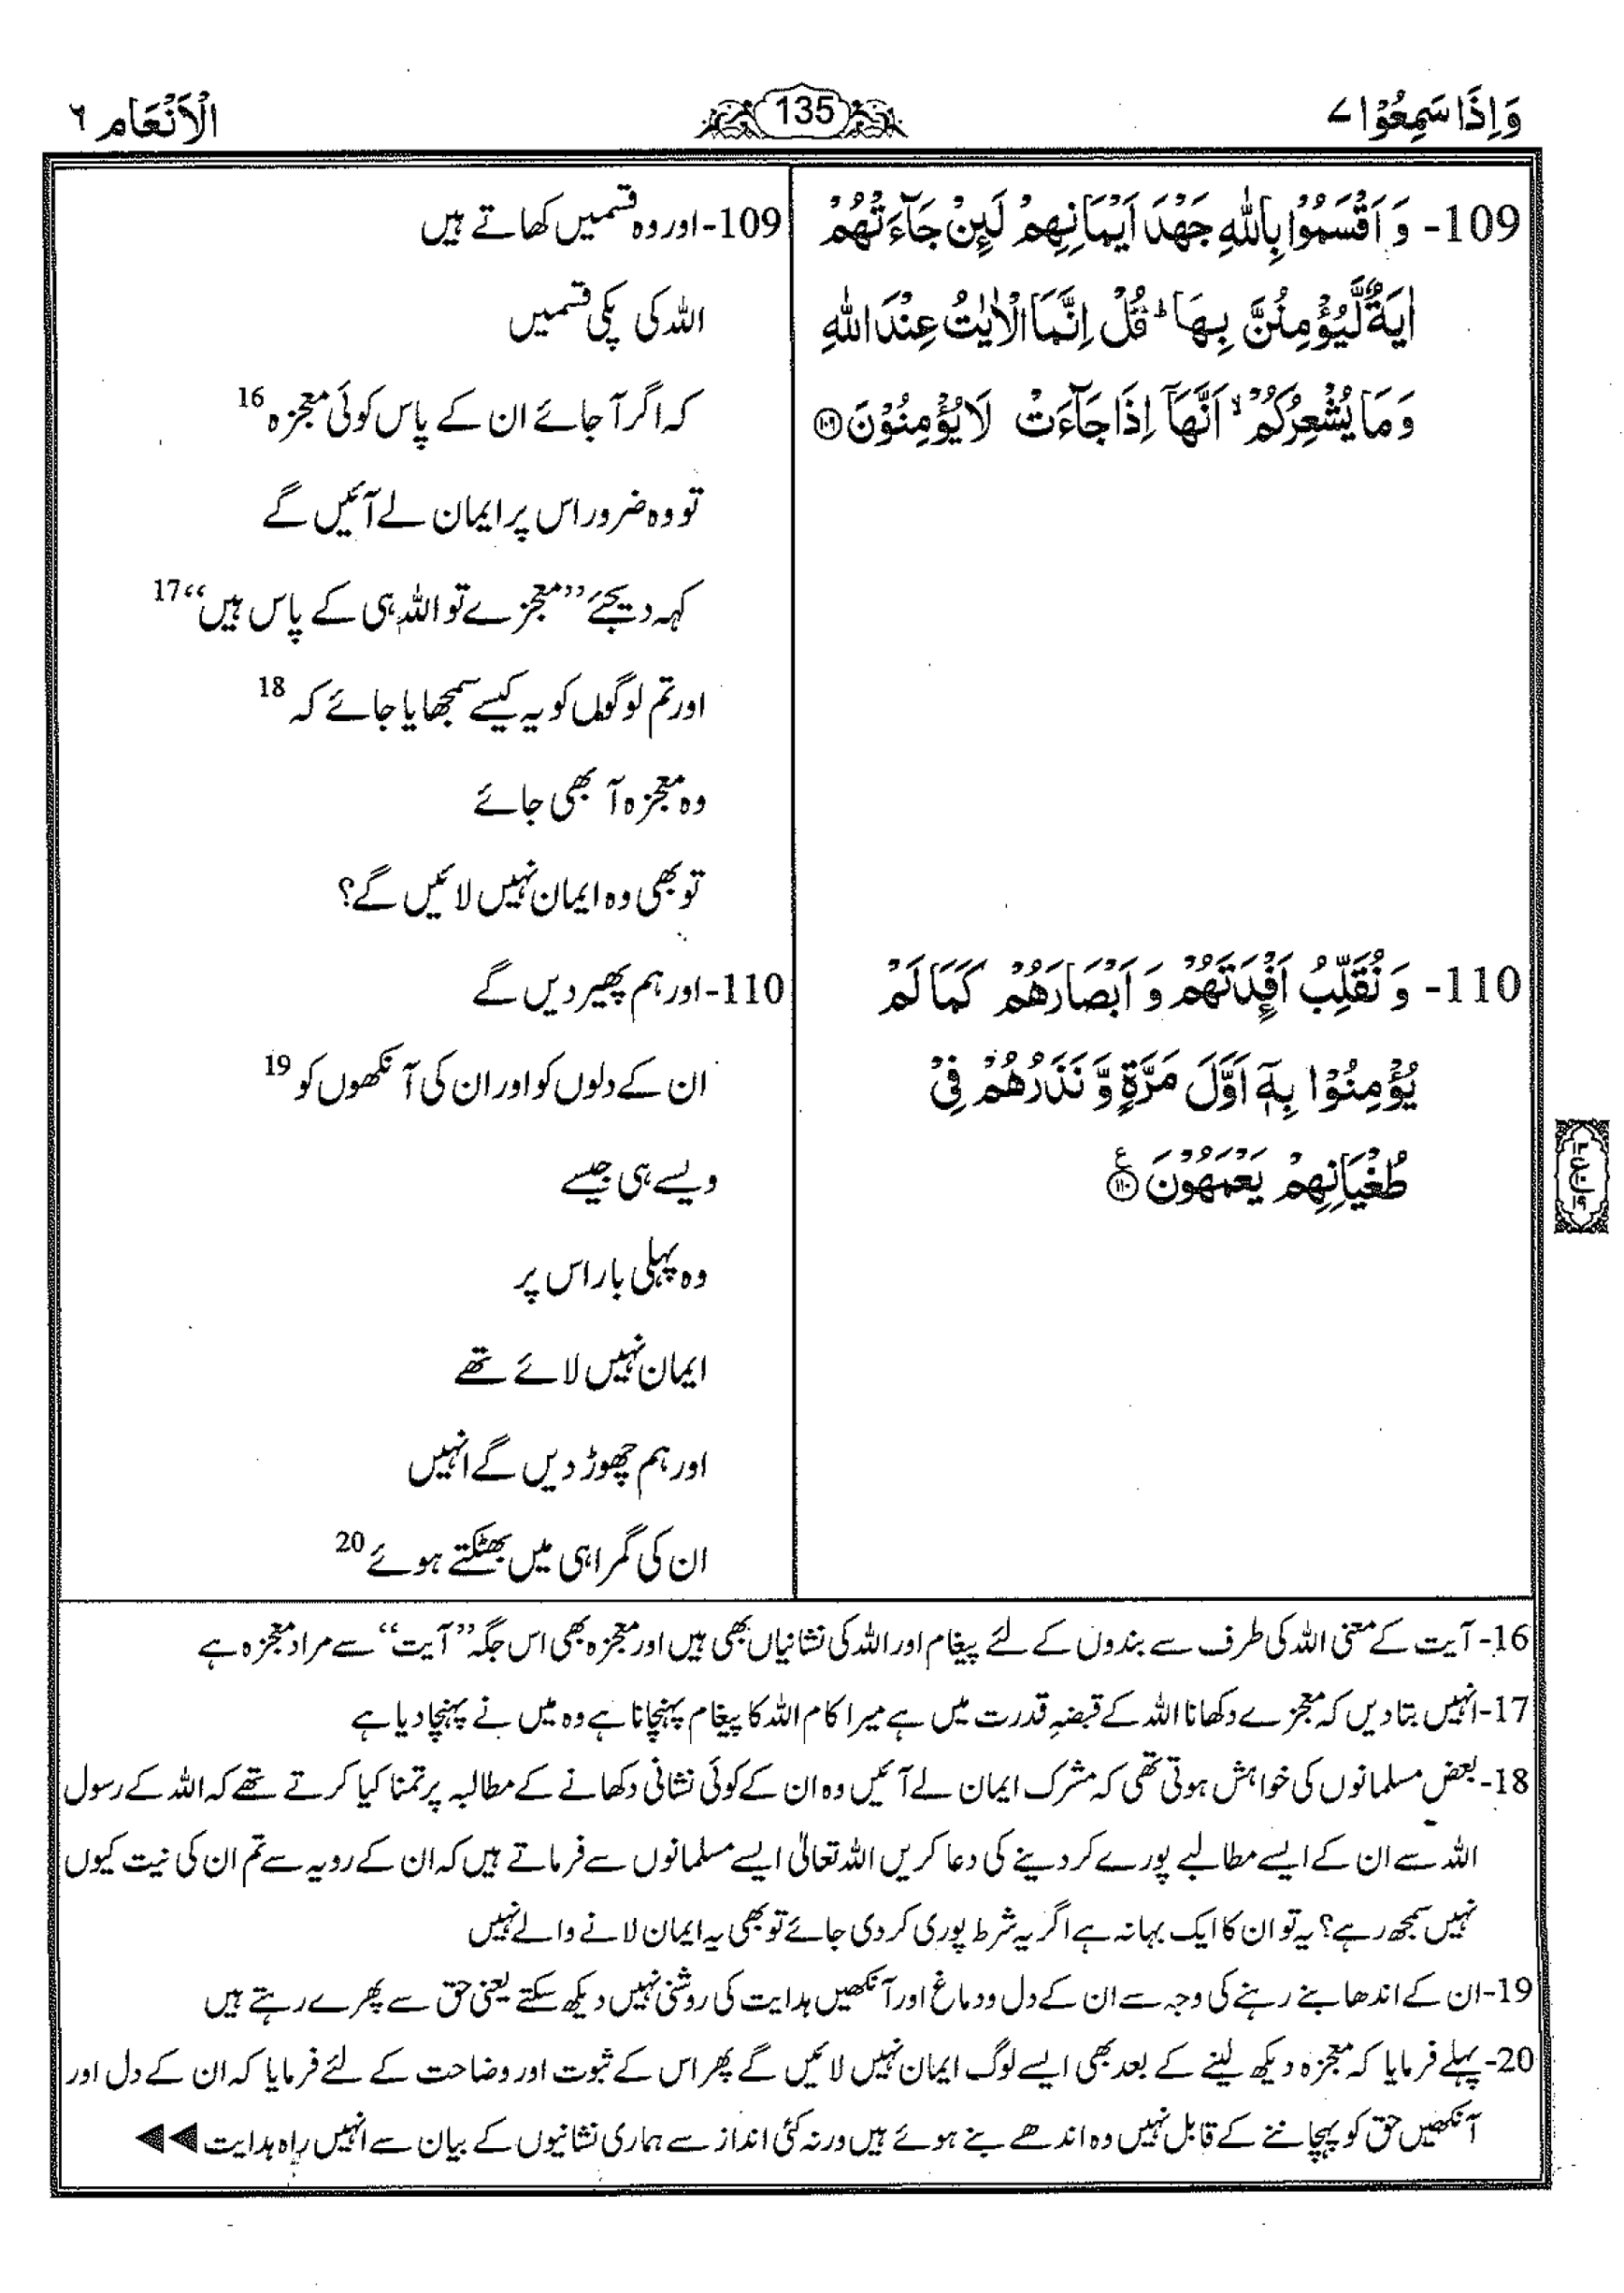 وَاِذَا سَمِعُوْا ۷
135
الْاَنْعَام ٦
109- وَ اَقْسَمُوْا بِاللّٰهِ جَهْدَ اَيْمَانِهِمْ لَئِنْ جَآءَتْهُمْ
اٰيَةٌ لَّيُؤْمِنُنَّ بِهَا ؕ قُلْ اِنَّمَا الْاٰيٰتُ عِنْدَ اللّٰهِ
وَ مَا يُشْعِرُكُمْ ۙ اَنَّهَاۤ اِذَا جَآءَتْ لَا يُؤْمِنُوْنَ ۝۱۰۹
110- وَ نُقَلِّبُ اَفْـِٕدَتَهُمْ وَ اَبْصَارَهُمْ كَمَا لَمْ
يُؤْمِنُوْا بِهٖۤ اَوَّلَ مَرَّةٍ وَّ نَذَرُهُمْ فِيْ
طُغْيَانِهِمْ يَعْمَهُوْنَ ۝۱۱۰ ع
109-اور وہ قسمیں کھاتے ہیں
اللہ کی پکی قسمیں
کہ اگر آ جائے ان کے پاس کوئی معجزہ 16
تو وہ ضرور اس پر ایمان لے آئیں گے
کہہ دیجئے ’’معجزے تو اللہ ہی کے پاس ہیں‘‘ 17
اور تم لوگوں کو یہ کیسے سمجھایا جائے کہ 18
وہ معجزہ آ بھی جائے
تو بھی وہ ایمان نہیں لائیں گے؟
110-اور ہم پھیر دیں گے
ان کے دلوں کو اور ان کی آنکھوں کو 19
ویسے ہی جیسے
وہ پہلی بار اس پر
ایمان نہیں لائے تھے
اور ہم چھوڑ دیں گے انہیں
ان کی گمراہی میں بھٹکتے ہوئے 20
16-آیت کے معنی اللہ کی طرف سے بندوں کے لئے پیغام اور اللہ کی نشانیاں بھی ہیں اور معجزہ بھی اس جگہ ’’آیت‘‘ سے مراد معجزہ ہے
17-انہیں بتا دیں کہ معجزے دکھانا اللہ کے قبضۂ قدرت میں ہے میرا کام اللہ کا پیغام پہنچانا ہے وہ میں نے پہنچا دیا ہے
18-بعض مسلمانوں کی خواہش ہوتی تھی کہ مشرک ایمان لے آئیں وہ ان کے کوئی نشانی دکھانے کے مطالبہ پر تمنا کیا کرتے تھے کہ اللہ کے رسول
اللہ سے ان کے ایسے مطالبے پورے کر دینے کی دعا کریں اللہ تعالیٰ ایسے مسلمانوں سے فرماتے ہیں کہ ان کے رویہ سے تم ان کی نیت کیوں
نہیں سمجھ رہے؟ یہ تو ان کا ایک بہانہ ہے اگر یہ شرط پوری کر دی جائے تو بھی یہ ایمان لانے والے نہیں
19-ان کے اندھا بنے رہنے کی وجہ سے ان کے دل و دماغ اور آنکھیں ہدایت کی روشنی نہیں دیکھ سکتے یعنی حق سے پھرے رہتے ہیں
20-پہلے فرمایا کہ معجزہ دیکھ لینے کے بعد بھی ایسے لوگ ایمان نہیں لائیں گے پھر اس کے ثبوت اور وضاحت کے لئے فرمایا کہ ان کے دل اور
آنکھیں حق کو پہچاننے کے قابل نہیں وہ اندھے بنے ہوئے ہیں ورنہ کئی انداز سے ہماری نشانیوں کے بیان سے انہیں راہ ہدایت ◀◀